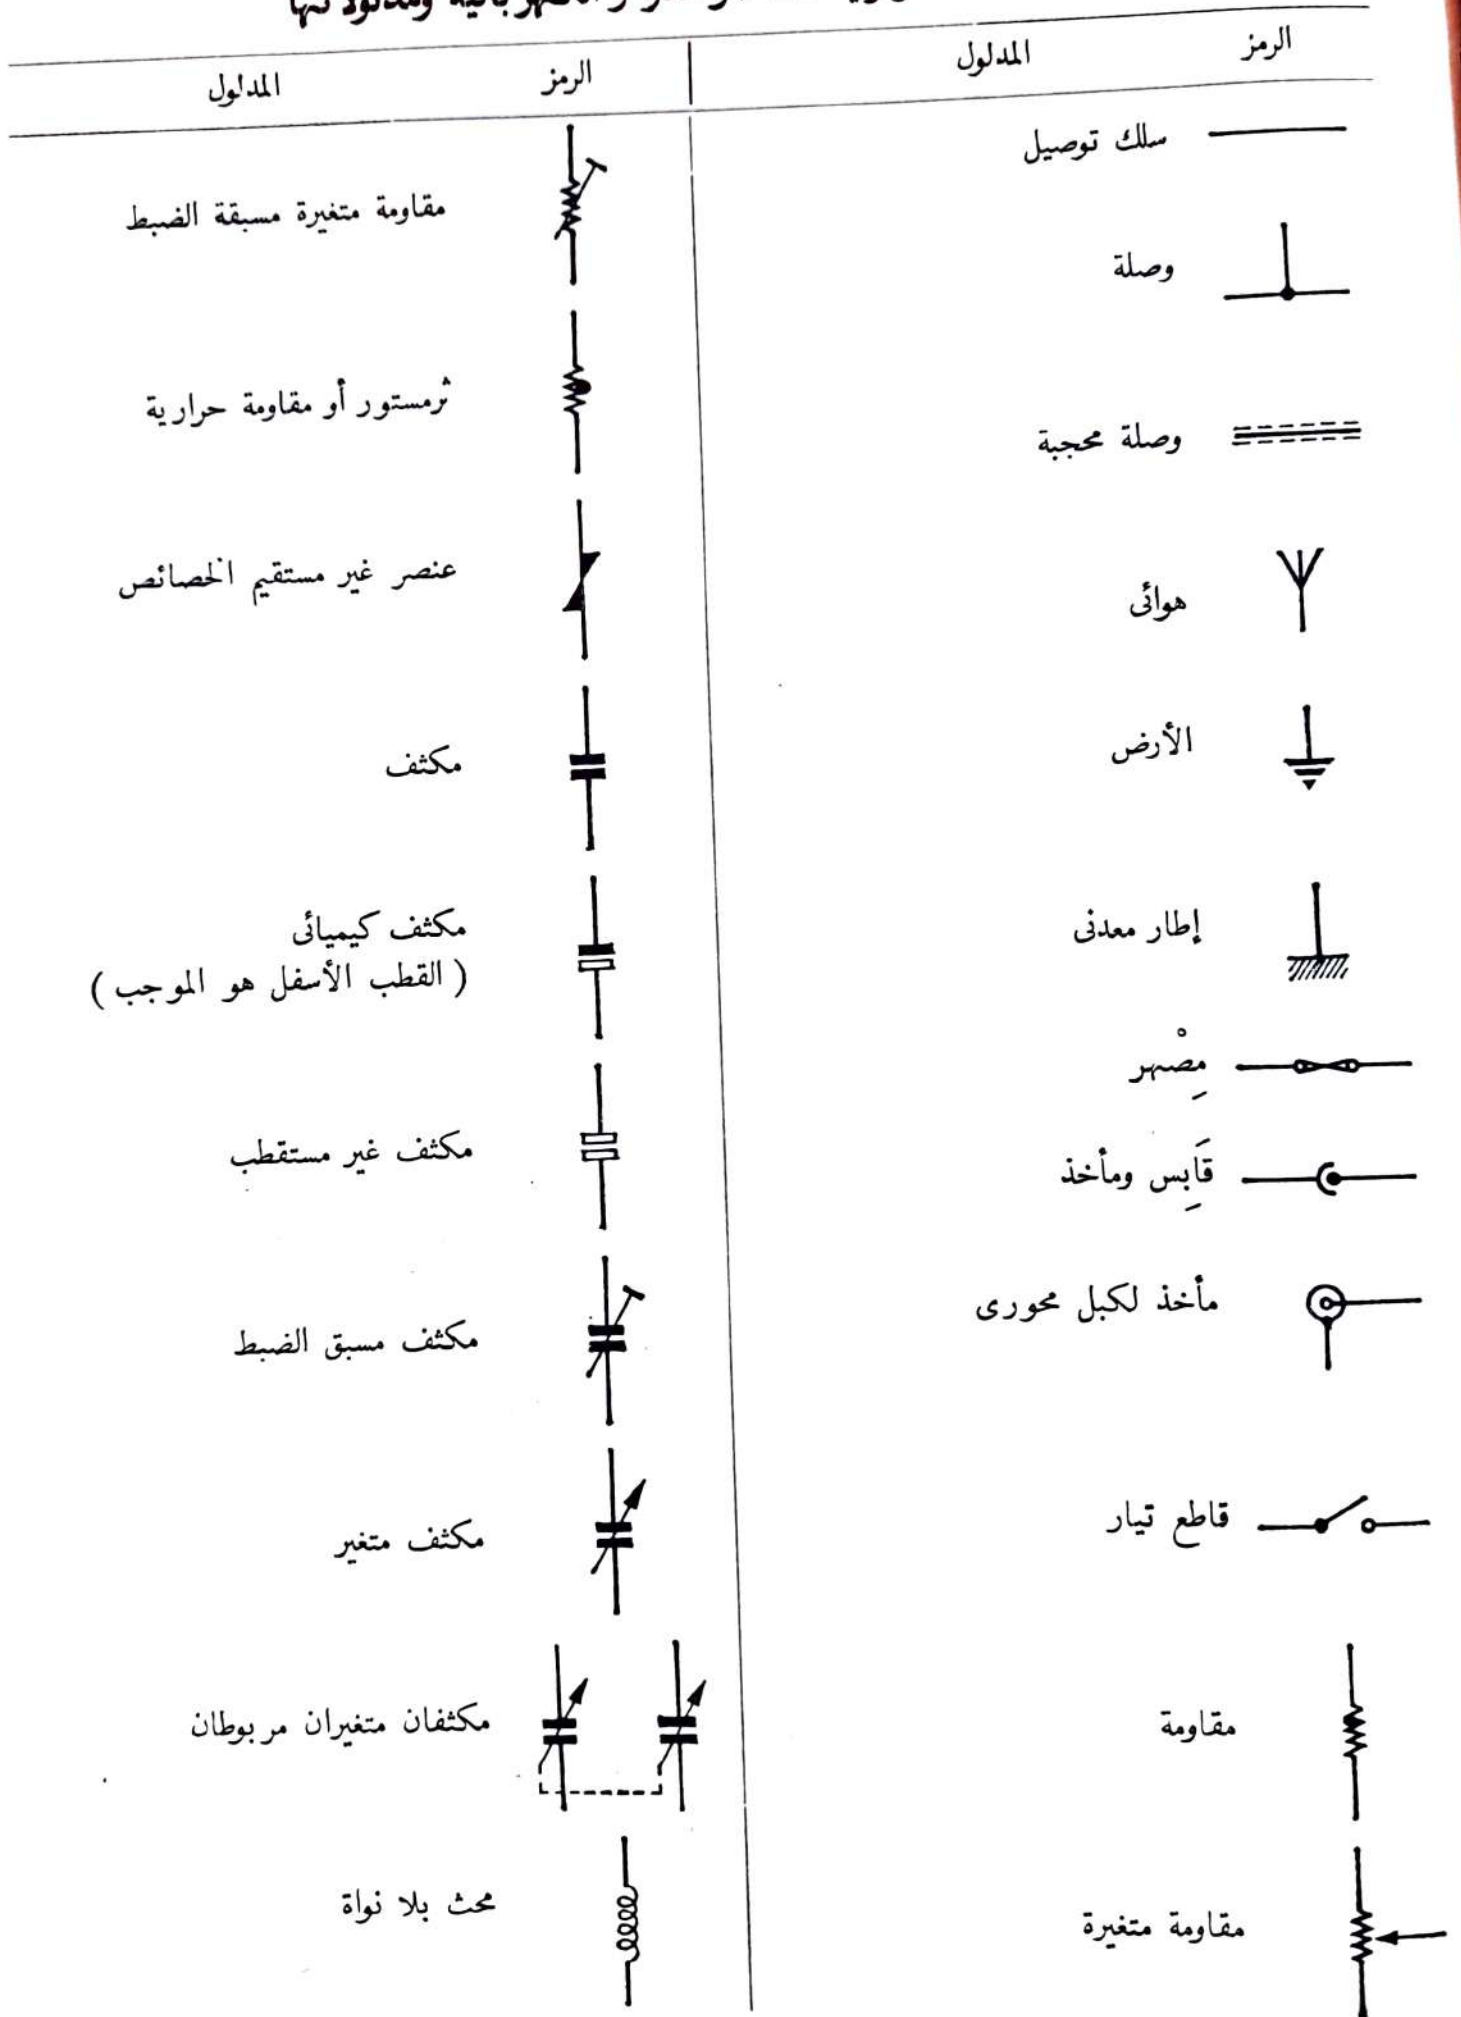 ومدلولاتها
الرمز المدلول
سلك توصيل
وصلة
وصلة محجبة
هوائى
الأرض
إطار معدنى
مِصْهر
قَابِس ومأخذ
مأخذ لكبل محورى
قاطع تيار
مقاومة
مقاومة متغيرة
الرمز المدلول
مقاومة متغيرة مسبقة الضبط
ثرمستور أو مقاومة حرارية
عنصر غير مستقيم الخصائص
مكثف
مكثف كيميائى
( القطب الأسفل هو الموجب )
مكثف غير مستقطب
مكثف مسبق الضبط
مكثف متغير
مكثفان متغيران مربوطان
محث بلا نواة